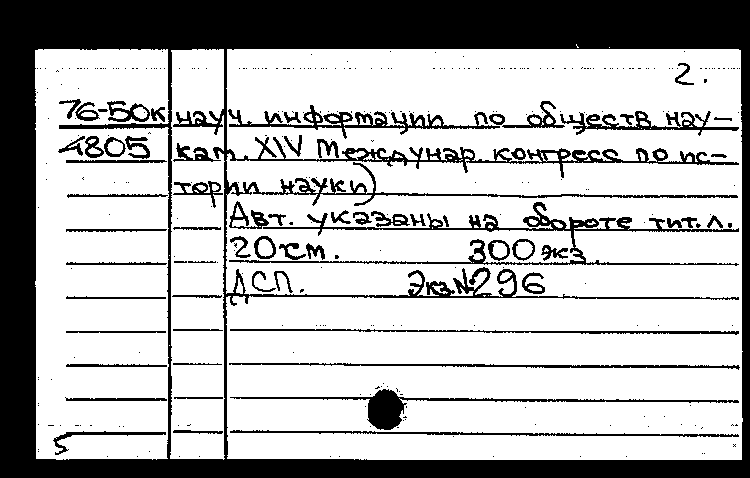 2.
76-50к науч. информации по обществ. нау-
4805 кам. XIV Междунар. конгресс по ис-
тории науки)
Авт. указаны на обороте тит. л.
20 см. 300 экз.
ДСП. Экз.№296
5